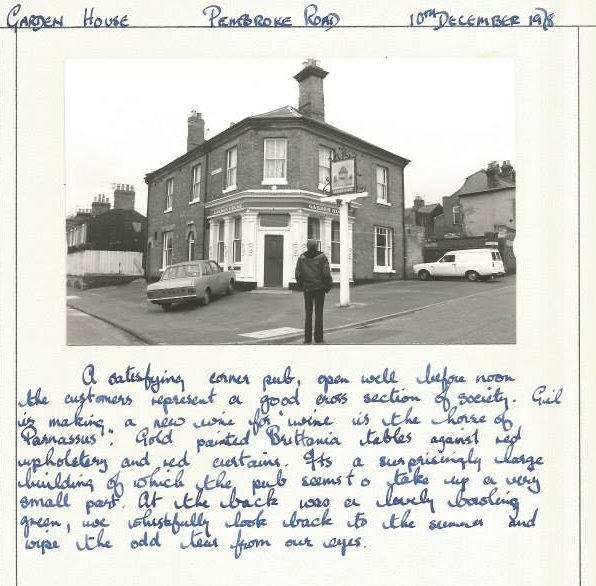 GARDEN HOUSE PEMBROKE ROAD 10TH DECEMBER 1978
GARDEN HOUSE
A satisfying corner pub, open well before noon
the customers represent a good cross section of society. Gil
is making a new wine for "wine is the horse of
Parnassus". Gold painted Brittania tables against red
upholstery and red curtains. Its a surprisingly large
building of which the pub seems to take up a very
small part. At the back was a lovely bowling
green, we whistfully look back to the summer and
wipe the odd tear from our eyes.